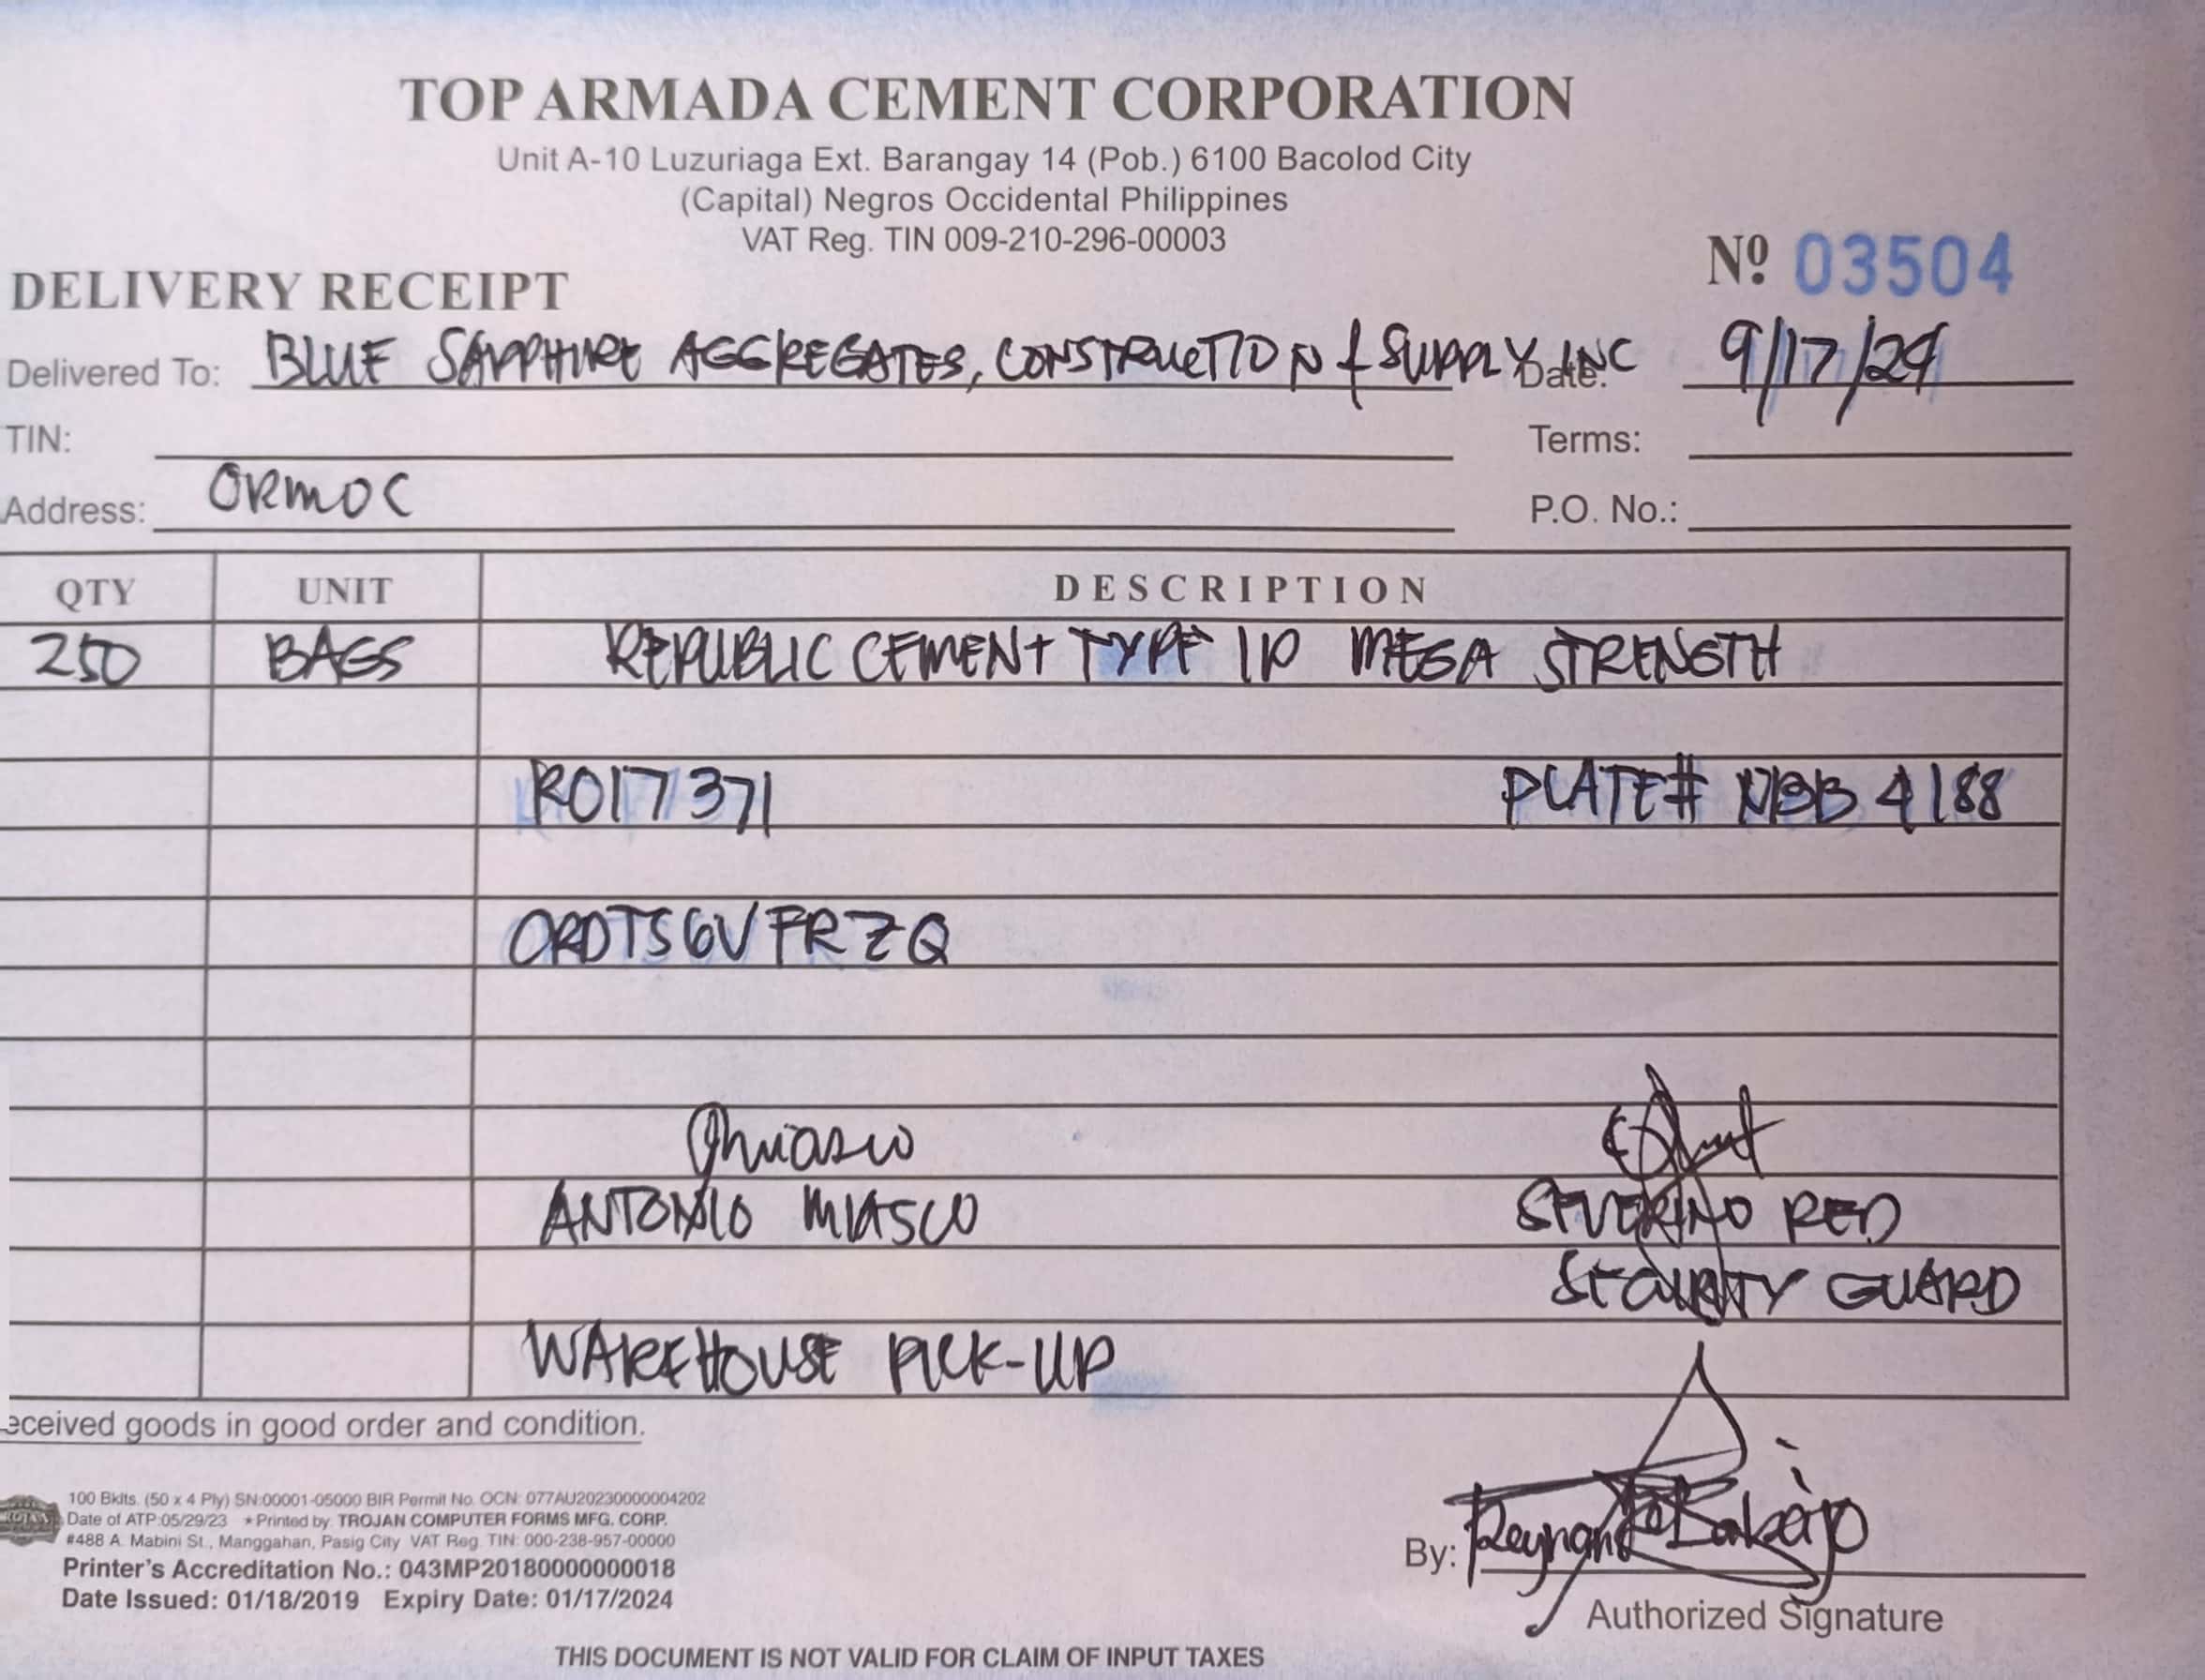 TOP ARMADA CEMENT CORPORATION
Unit A-10 Luzuriaga Ext. Barangay 14 (Pob.) 6100 Bacolod City
(Capital) Negros Occidental Philippines
VAT Reg. TIN 009-210-296-00003
Nº 03504
DELIVERY RECEIPT
Delivered To: BLUE SAPPHIRE AGGREGATES, CONSTRUCTION & SUPPLY INC Date: 9/17/24
TIN: Terms:
Address: ORMOC P.O. No.:
QTY UNIT DESCRIPTION
250 BAGS REPUBLIC CEMENT TYPE 1P MEGA STRENGTH
R017371 PLATE# NBB 4188
ORDTS6VFRZQ
ANTONIO MIASCO SEVERINO RED
SECURITY GUARD
WAREHOUSE PICK-UP
eceived goods in good order and condition.
100 Bklts. (50 x 4 Ply) SN:00001-05000 BIR Permit No. OCN: 077AU20230000004202
Date of ATP:05/29/23 ★Printed by: TROJAN COMPUTER FORMS MFG. CORP.
#488 A. Mabini St., Manggahan, Pasig City VAT Reg. TIN: 000-238-957-00000
Printer's Accreditation No.: 043MP20180000000018
Date Issued: 01/18/2019 Expiry Date: 01/17/2024
By:
Authorized Signature
THIS DOCUMENT IS NOT VALID FOR CLAIM OF INPUT TAXES